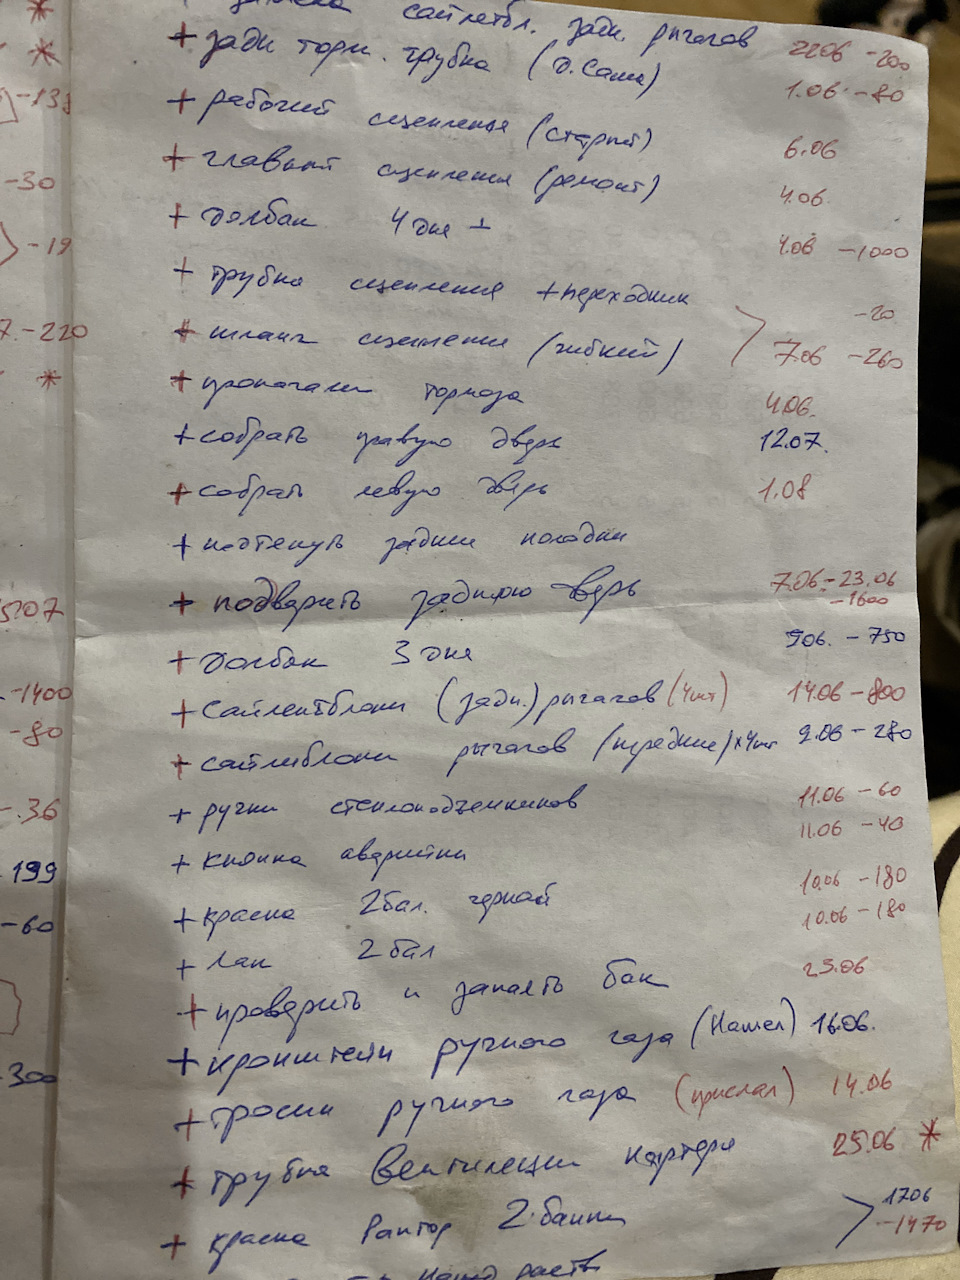 замена сайлентбл. задн. рычагов 22.06 -200
+ задн торм. трубка (д.Саша) 1.06 -80
+ рабочий сцепленья (старый) 6.06
+ главный сцепления (ремонт) 4.06.
+ долбак 4 дня ± 4.06 -1000
+ трубка сцепления + переходник -20
+ шланг сцепления (гибкий) 7.06 -260
+ прокачали тормоза 4.06.
+ собрать правую дверь 12.07.
+ собрать левую дверь 1.08
+ подтянуть задние колодки
+ подварить заднюю дверь 7.06-23.06 -1600
+ долбак 3 дня 9.06. -750
+ сайлентблоки (задн.) рычагов (4шт) 14.06 -800
+ сайлнблоки рычагов (передние) х4шт 9.06 -280
+ ручки стеклоподъемников 11.06 -60
+ кнопка аварийки 11.06 -40
+ краска 2 бал. черной 10.06 -180
+ лак 2 бал 10.06 -180
+ проверить и запаять бак 23.06
+ кронштейн ручного газа (Нашел) 16.06.
+ тросик ручного газа (прислал) 14.06
+ трубка вентиляции картера 25.06 *
+ краска Раптор 2 банки 17.06 -1470
*
*
-30
-19
7.-220
*
-1400
-80
-36
199
-60
-300